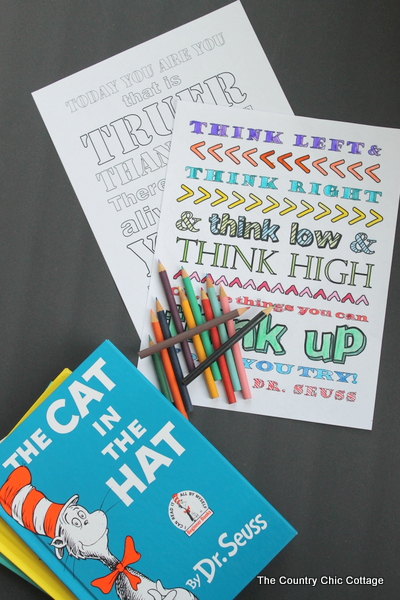 TODAY YOU ARE YOU
that is
TRUER
THAN
There
aliv
THINK LEFT &
THINK RIGHT
& think low &
THINK HIGH
things you can
nk up
YOU TRY!
DR. SEUSS
THE CAT
IN
THE
HAT
I CAN READ IT ALL BY MYSELF
Beginner Books
By Dr. Seuss
The Country Chic Cottage